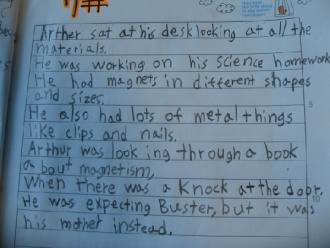 Arther sat at his desk looking at all the
materials.
He was working on his science homework
He had magnets in different shapes
and sizes.
He also had lots of metal things
like clips and nails.
Arthur was looking through a book
about magnetism,
When there was a knock at the door.
He was expecting Buster, but it was
his mother instead.
5
10